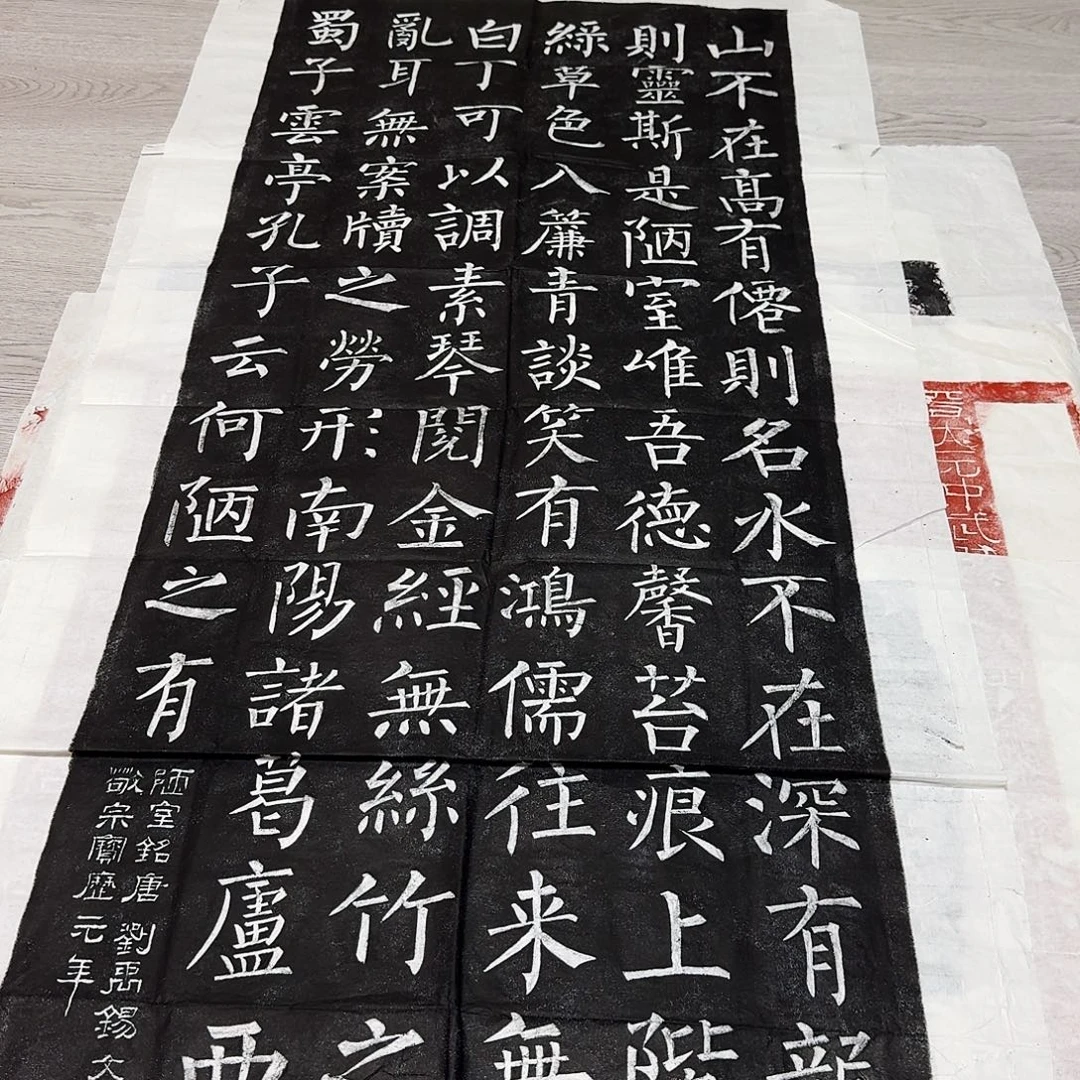 山不在高有僊則名水不在深有龍
則靈斯是陋室唯吾德馨苔痕上階
綠草色入簾青談笑有鴻儒往来無
白丁可以調素琴閱金經無絲竹之
亂耳無案牘之勞形南陽諸葛廬西
蜀子雲亭孔子云何陋之有
陋室銘唐劉禹錫文
敬宗寶歷元年
晉太元中武